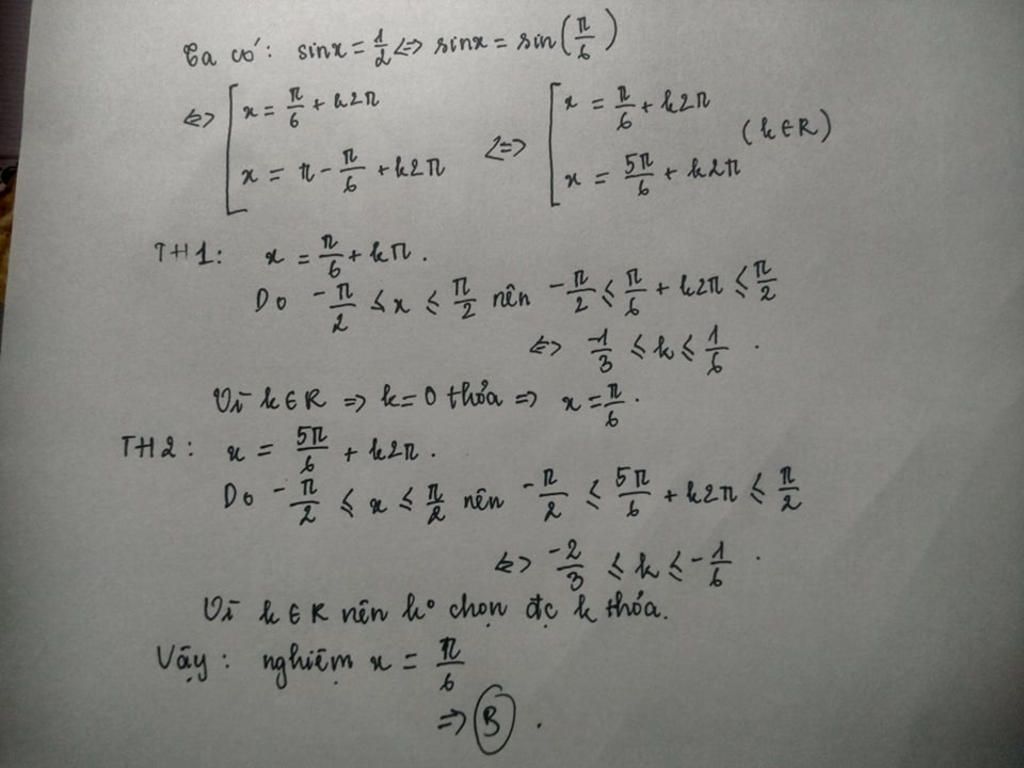 Ta có: sinx = 1/2 <=> sinx = sin(π/6)
<=> [ x = π/6 + k2π <=> [ x = π/6 + k2π
x = π - π/6 + k2π x = 5π/6 + k2π (k∈R)
TH1: x = π/6 + kπ.
Do -π/2 ≤ x ≤ π/2 nên -π/2 ≤ π/6 + k2π ≤ π/2
<=> -1/3 ≤ k ≤ 1/6.
Vì k∈R => k=0 thỏa => x = π/6.
TH2: x = 5π/6 + k2π.
Do -π/2 ≤ x ≤ π/2 nên -π/2 ≤ 5π/6 + k2π ≤ π/2
<=> -2/3 ≤ k ≤ -1/6.
Vì k∈R nên k° chọn đc k thỏa.
Vậy: nghiệm x = π/6
=> B.